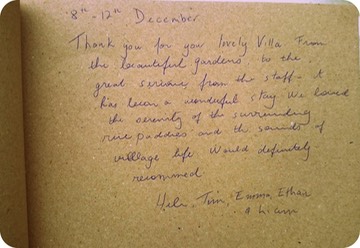 8th - 12th December
Thank you for you lovely Villa From
the beautiful gardens to the
great service from the staff - it
has been a wonderful stay. We loved
the serenity of the surrounding
rice paddies and the sounds of
village life. Would definitely
recommend
Tim, Emma, Ethan
& Liam